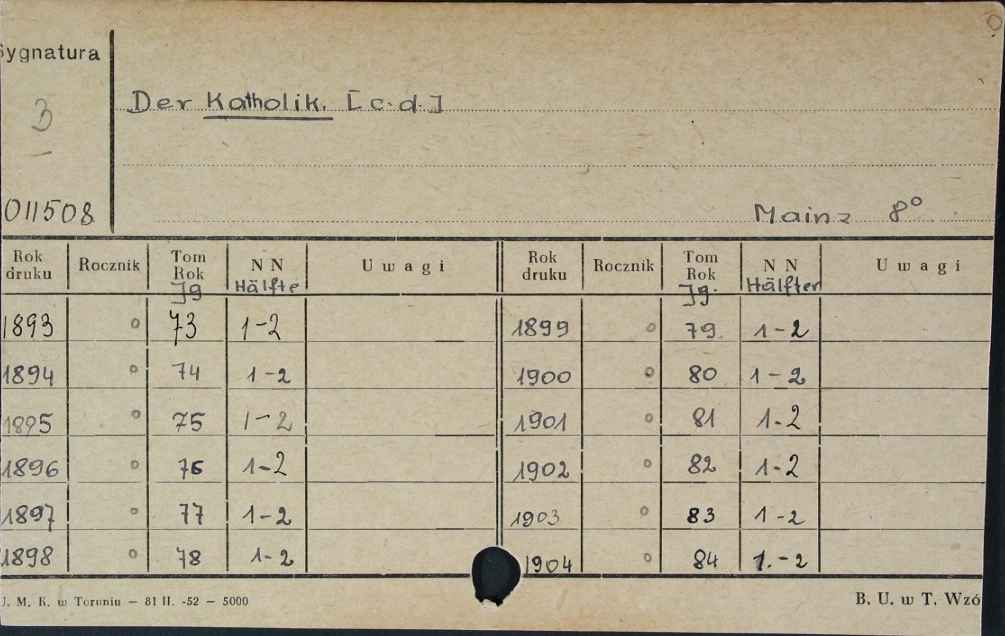 Sygnatura
3
Der Katholik. [c.d.]
011508
Mainz 8°
Rok druku Rocznik Tom Rok Jg NN Hälfte Uwagi Rok druku Rocznik Tom Rok Jg. NN Hälfter Uwagi
1893 o 73 1-2 1899 o 79. 1-2
1894 o 74 1-2 1900 o 80 1-2
1895 o 75 1-2 1901 o 81 1-2
1896 o 76 1-2 1902 o 82 1-2
1897 o 77 1-2 1903 o 83 1-2
1898 o 78 1-2 1904 o 84 1.-2
U. M. K. w Toruniu — 81 II. -52 — 5000 B. U. w T. Wzó